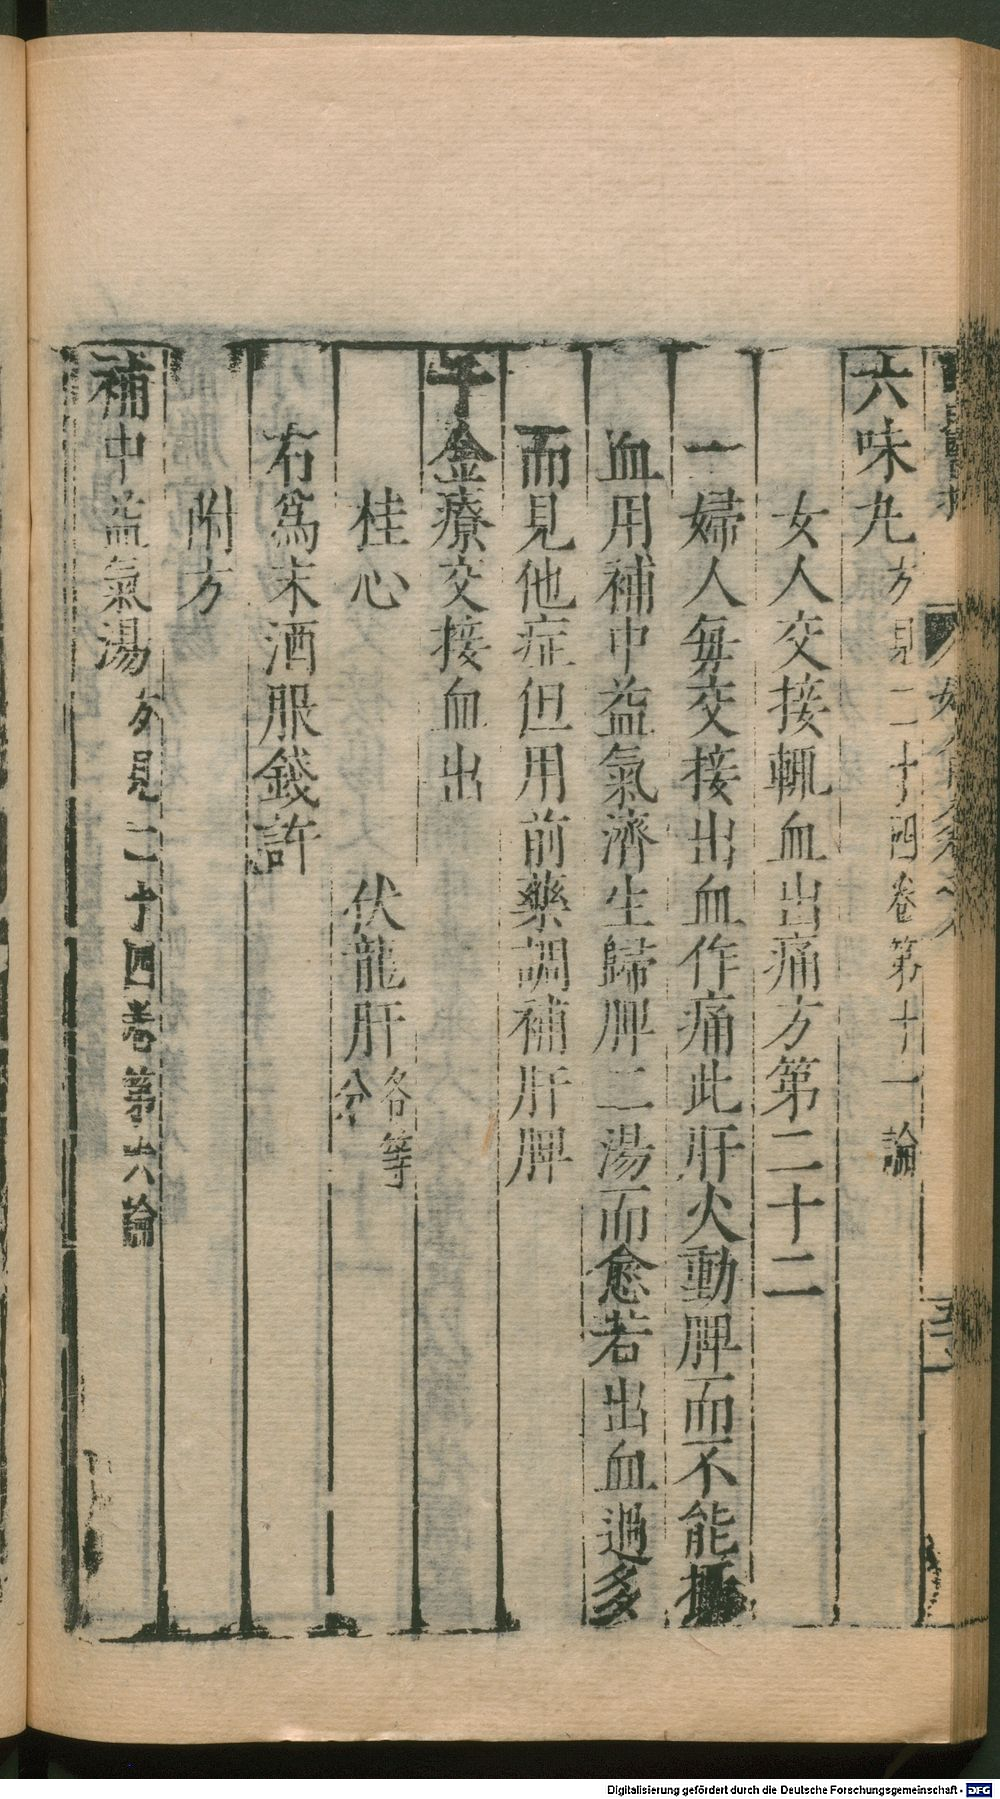 六味丸方見二十四卷第十一論
女人交接輒血出痛方第二十二
一婦人每交接出血作痛此肝火動脾而不能攝
血用補中益氣濟生歸脾二湯而愈若出血過多
而見他症但用前藥調補肝脾
千金療交接血出
桂心 伏龍肝各等分
右為末酒服錢許
附方
補中益氣湯方見二十四卷第六論
Digitalisierung gefördert durch die Deutsche Forschungsgemeinschaft - DFG